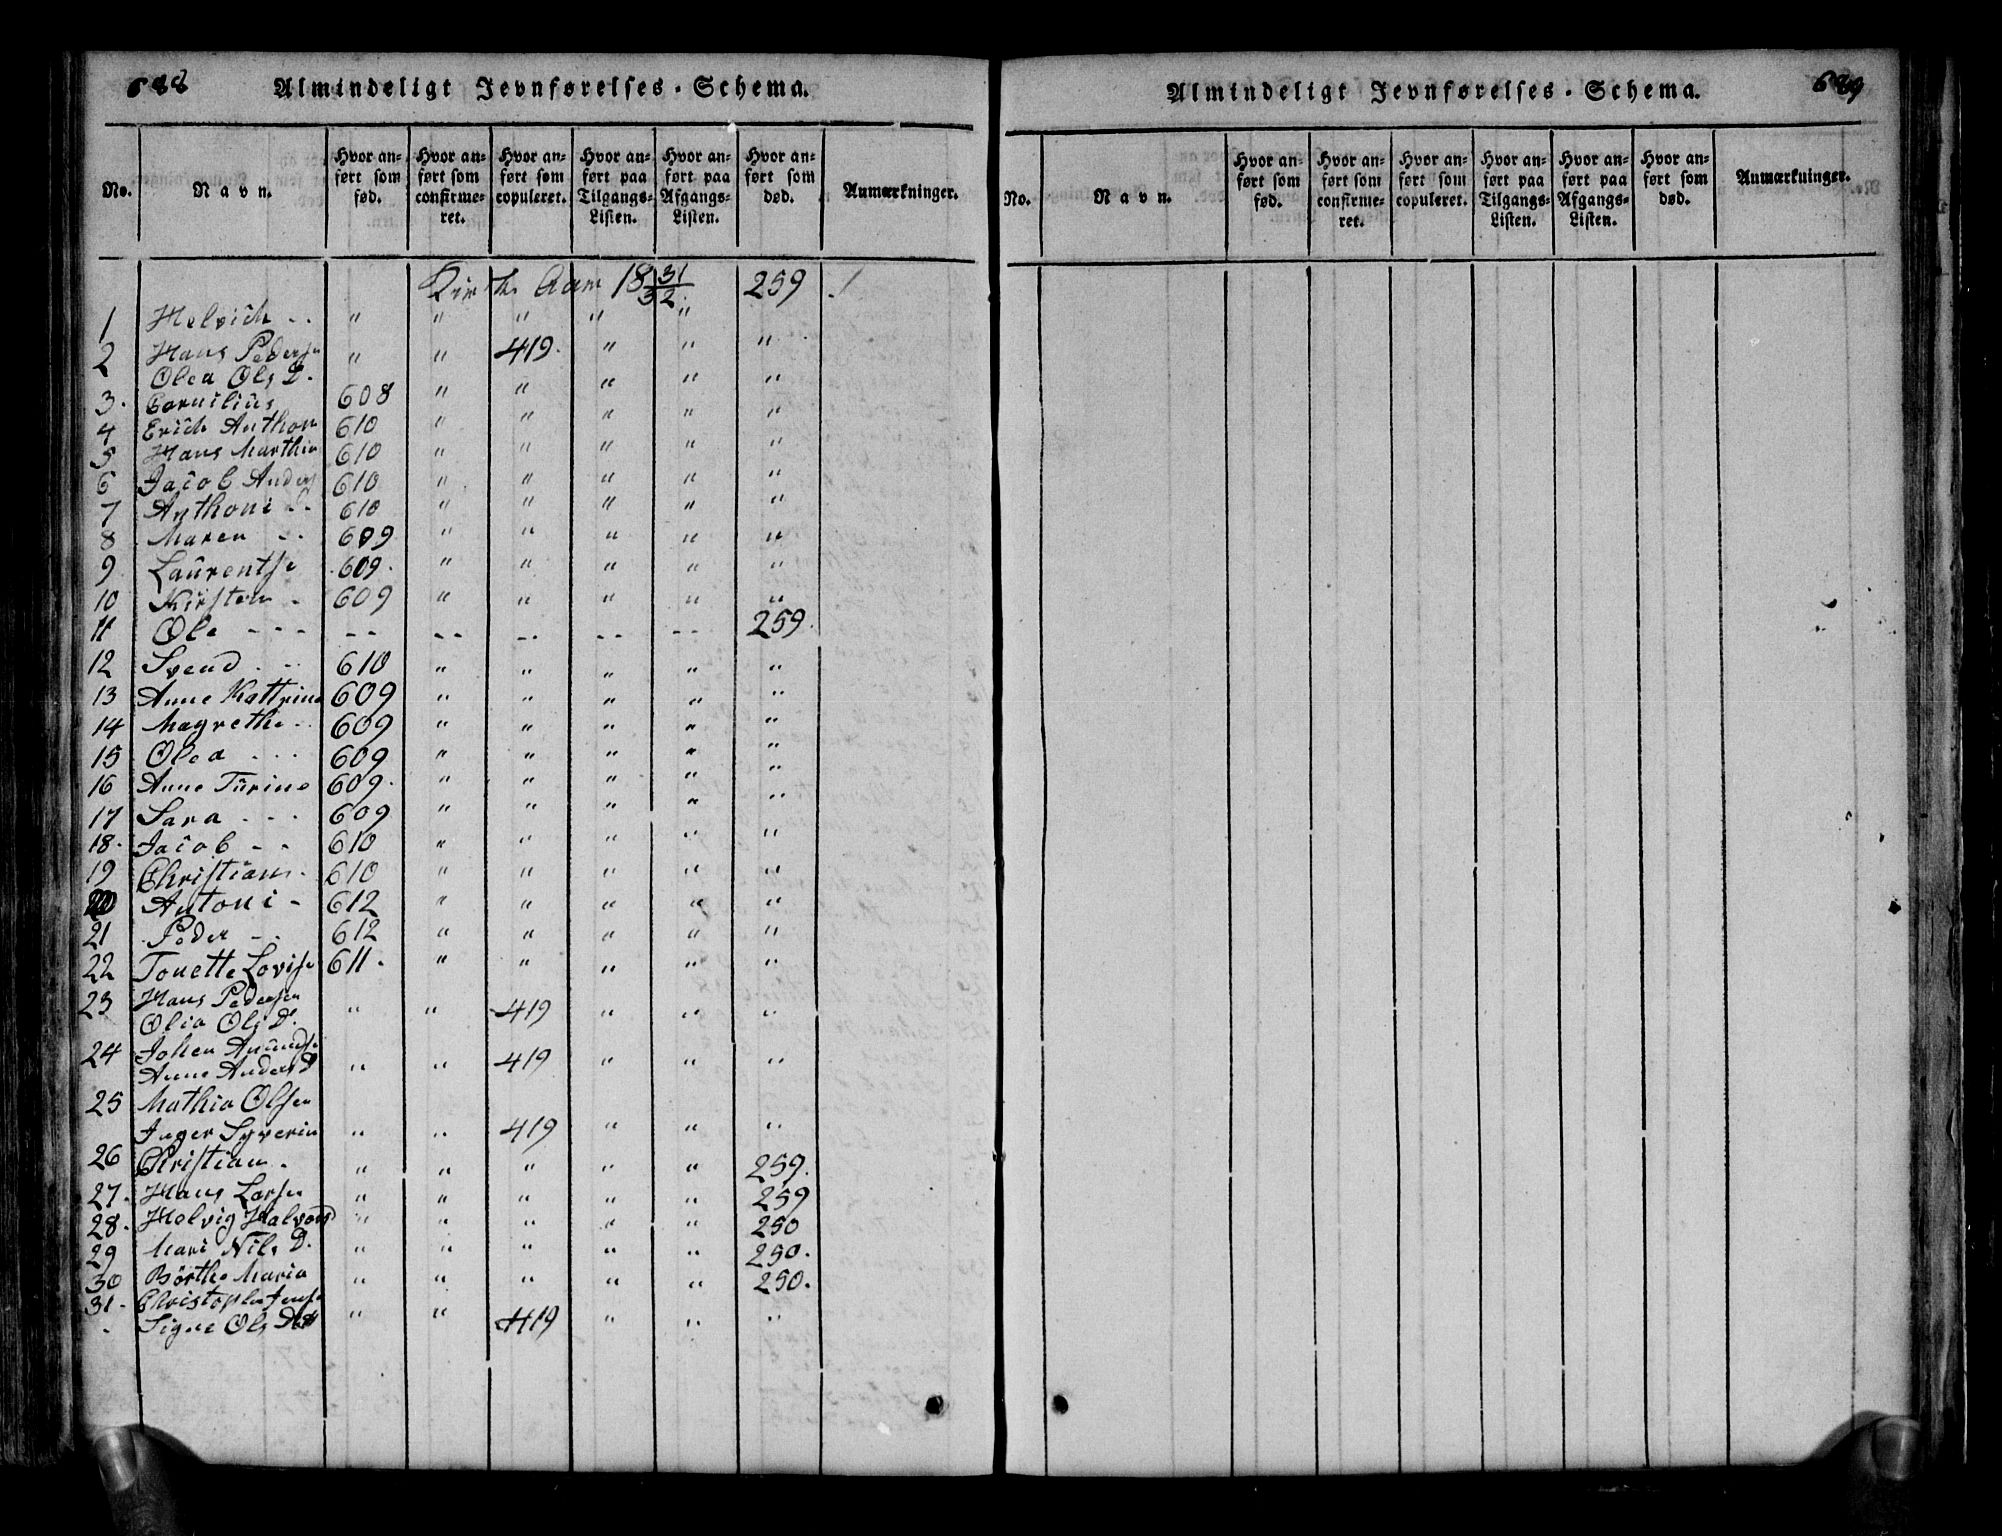 688 Almindeligt Jevnførelses-Schema.
No. Navn. Hvor anført som fød. Hvor anført som confirmeret. Hvor anført som copuleret. Hvor anført paa Tilgangs-Listen. Hvor anført paa Afgangs-Listen. Hvor anført som død. Anmærkninger.
Kirke Aar 18 31/32 259
1 Helvich - - " " " " "
2 Hans Peders " " 419. " " "
Olea Ols D. " " " "
3. Cornilius 608 " " " " "
4 Erich Anthon 610 " " " " "
5 Hans Marthin 610 " " " " "
6 Jacob Anders 610 " " " " "
7 Anthoni - - 610 " " " " "
8 Maren - - 609 " " " " "
9 Laurentse 609. " " " " "
10 Kirsten - 609 " " " " "
11 Ole - - - - - - - - - - - - - 259.
12 Svend - - 610 " " " " "
13 Anne Kattrine 609 " " " " "
14 Magrethe - 609 " " " " "
15 Olea - - - 609 " " " " "
16 Anne Turine 609. " " " " "
17 Sara - - - 609 " " " " "
18. Jacob - - 610 " " " " "
19 Christian. 610 " " " " "
20 Antoni - 612 " " " " "
21 Peder - - 612 " " " " "
22 Tonette Lovise 611. " " " " "
23 Hans Pedersen
Olia Ols D. " " 419 " " "
24 Johen Amundse
Anne Anders D " " 419 " " "
25 Mathia Olsen
Inger Syverin " " 419 " " "
26 Christian. " " " " " 259.
27. Hans Larsen " " " " " 259
28. Helvig Halvors " " " " " 250
29 Mari Nils D. " " " " " 250.
30 Börthe Maria " " " " " 250.
31. Christopher Jense
Signe Ols Datt " " 419 " " "
Almindeligt Jevnførelses-Schema. 689
No. Navn. Hvor anført som fød. Hvor anført som confirmeret. Hvor anført som copuleret. Hvor anført paa Tilgangs-Listen. Hvor anført paa Afgangs-Listen. Hvor anført som død. Anmærkninger.